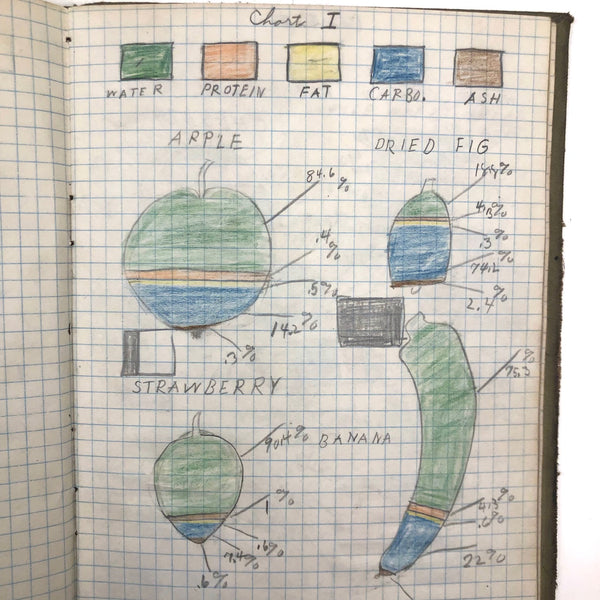 Chart I
WATER PROTEIN FAT CARBO. ASH
APPLE
84.6%
.4%
.5%
14.2%
.3%
DRIED FIG
4.3%
.3%
74.2%
2.4%
STRAWBERRY
90.4%
1%
.6%
7.4%
.6%
BANANA
75.3%
.6%
22%